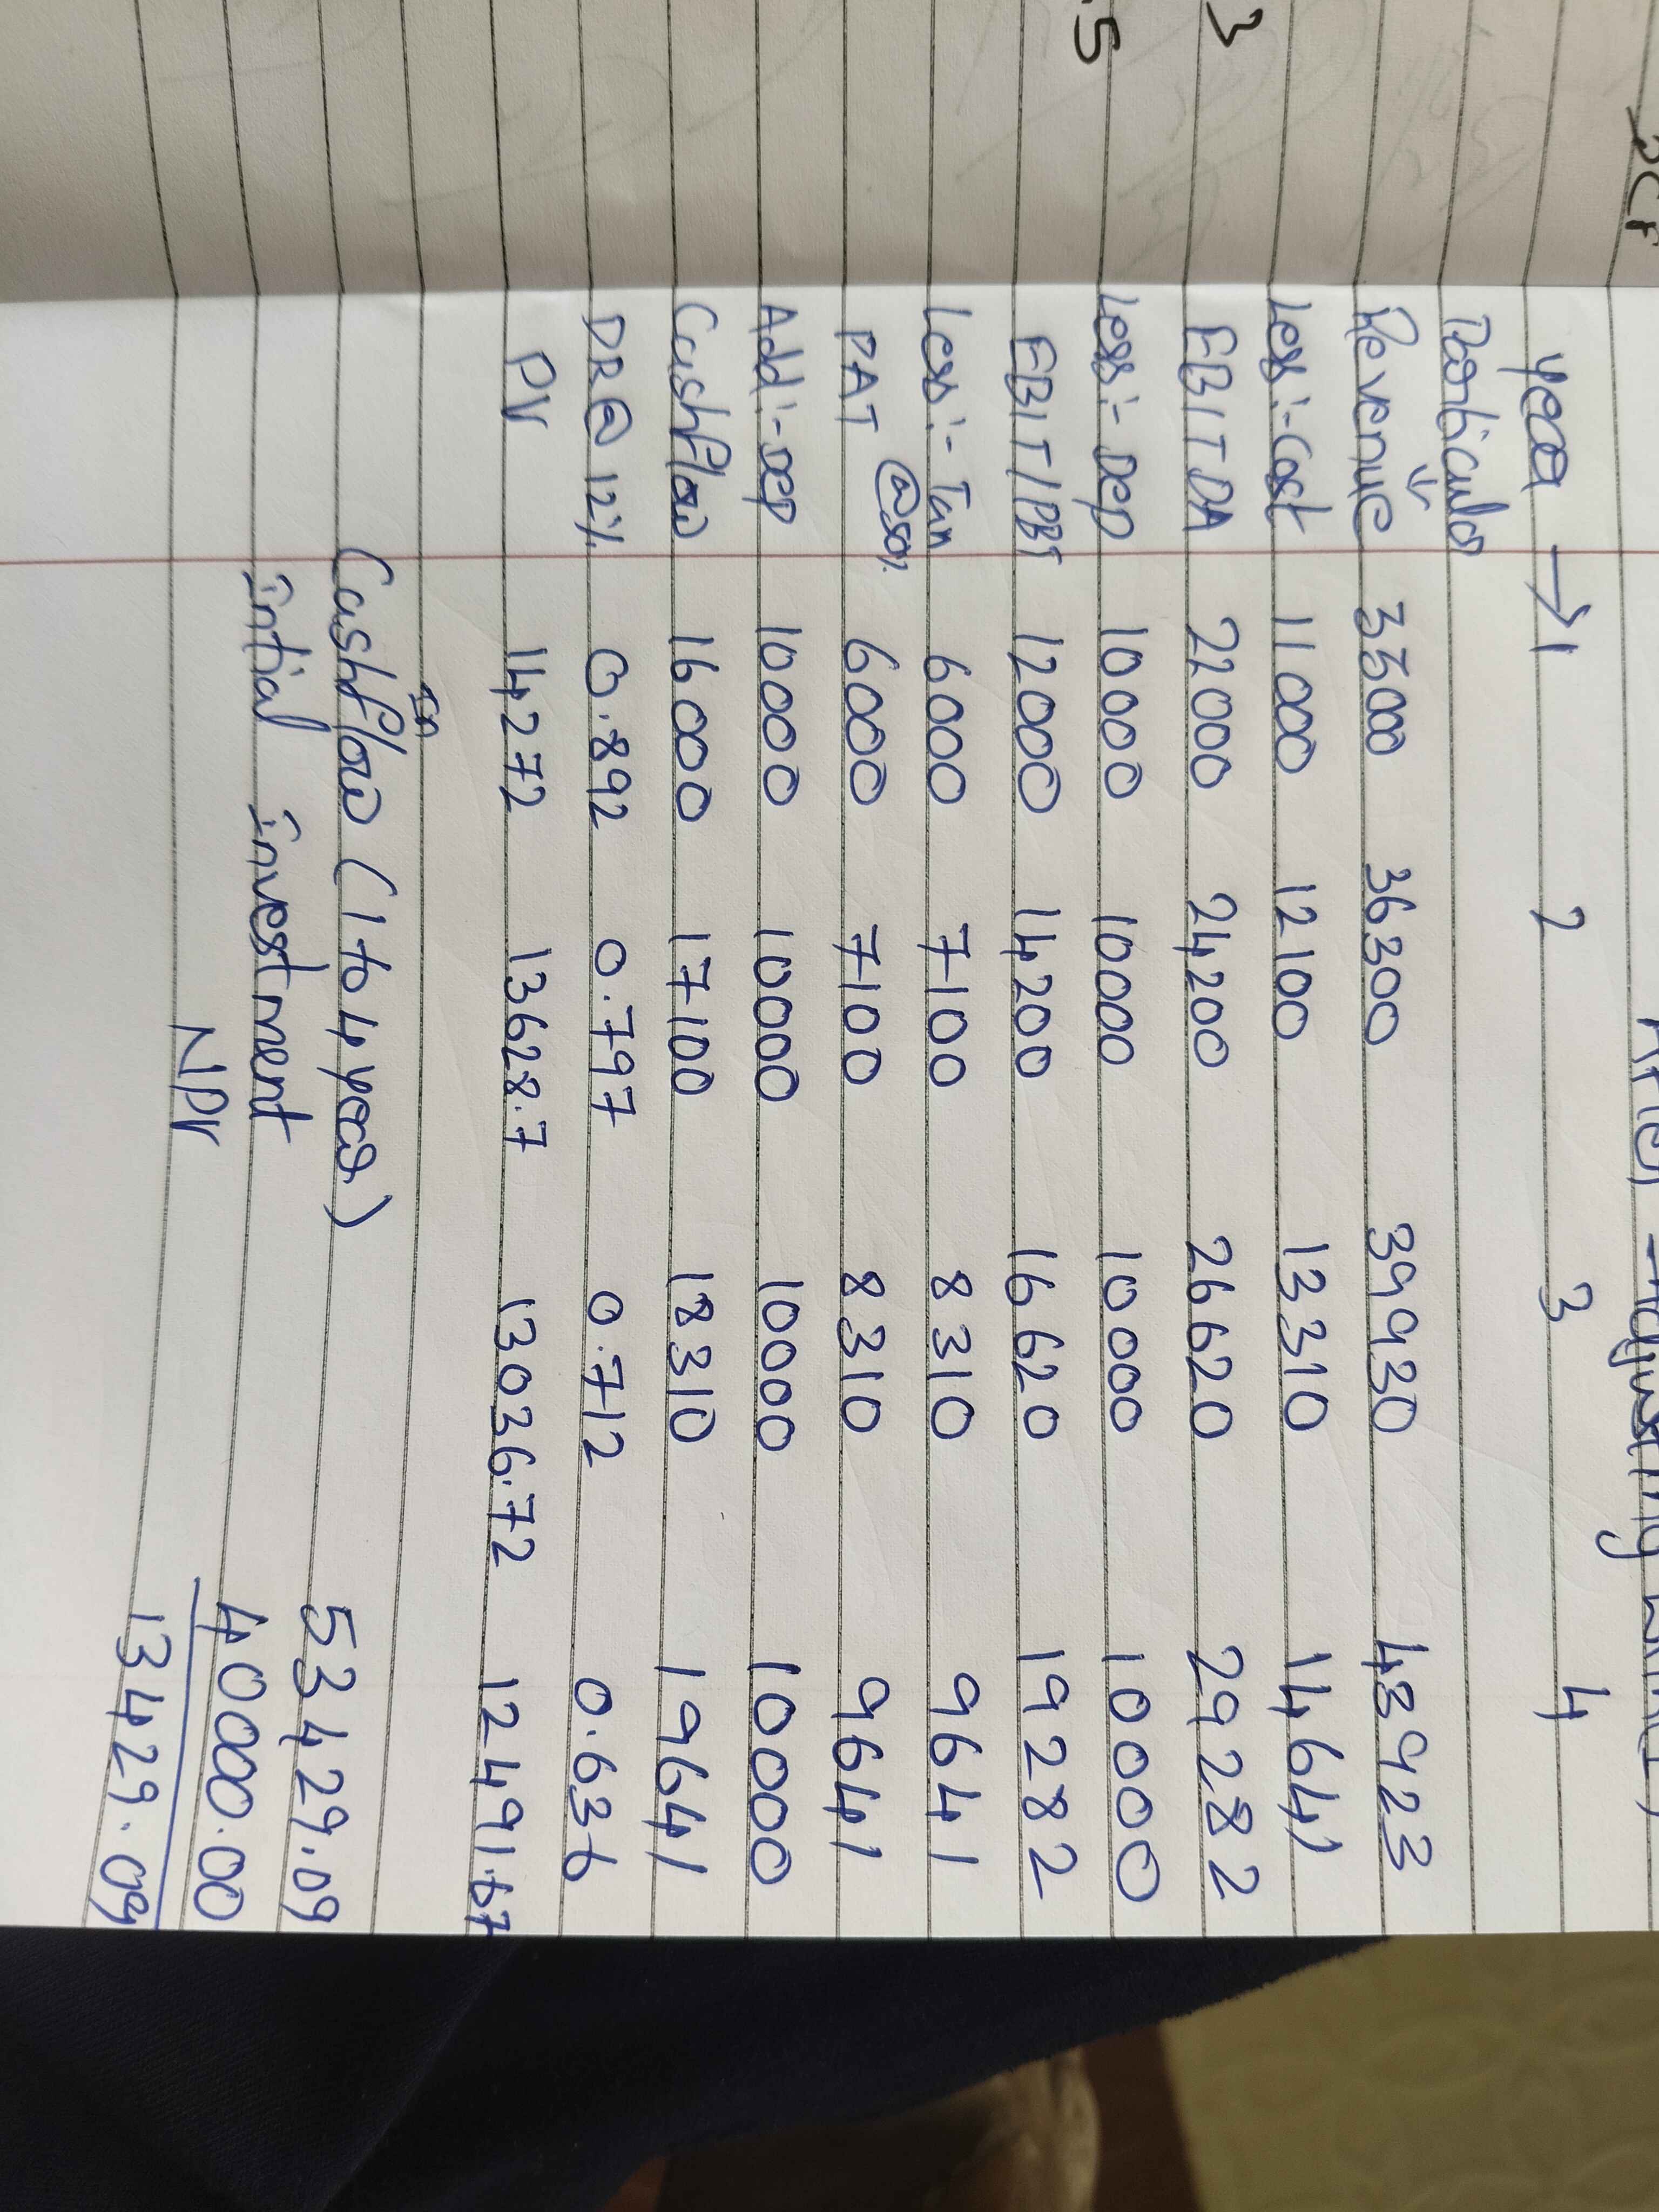 DCF
3
.5
After Adjusting
Year → 1 2 3 4
Particular ↓
Revenue 33000 36300 39930 43923
Less:- Cost 11000 12100 13310 14641
EBITDA 22000 24200 26620 29282
Less:- Dep 10000 10000 10000 10000
EBIT/PBT 12000 14200 16620 19282
Less:- Tax @50% 6000 7100 8310 9641
PAT 6000 7100 8310 9641
Add:- Dep 10000 10000 10000 10000
Cashflow 16000 17100 18310 19641
DR@12% 0.892 0.797 0.712 0.636
PV 14272 13628.7 13036.72 12491.67
Cashflow In (1 to 4 year) 53429.09
intial investment 40000.00
NPV 13429.09